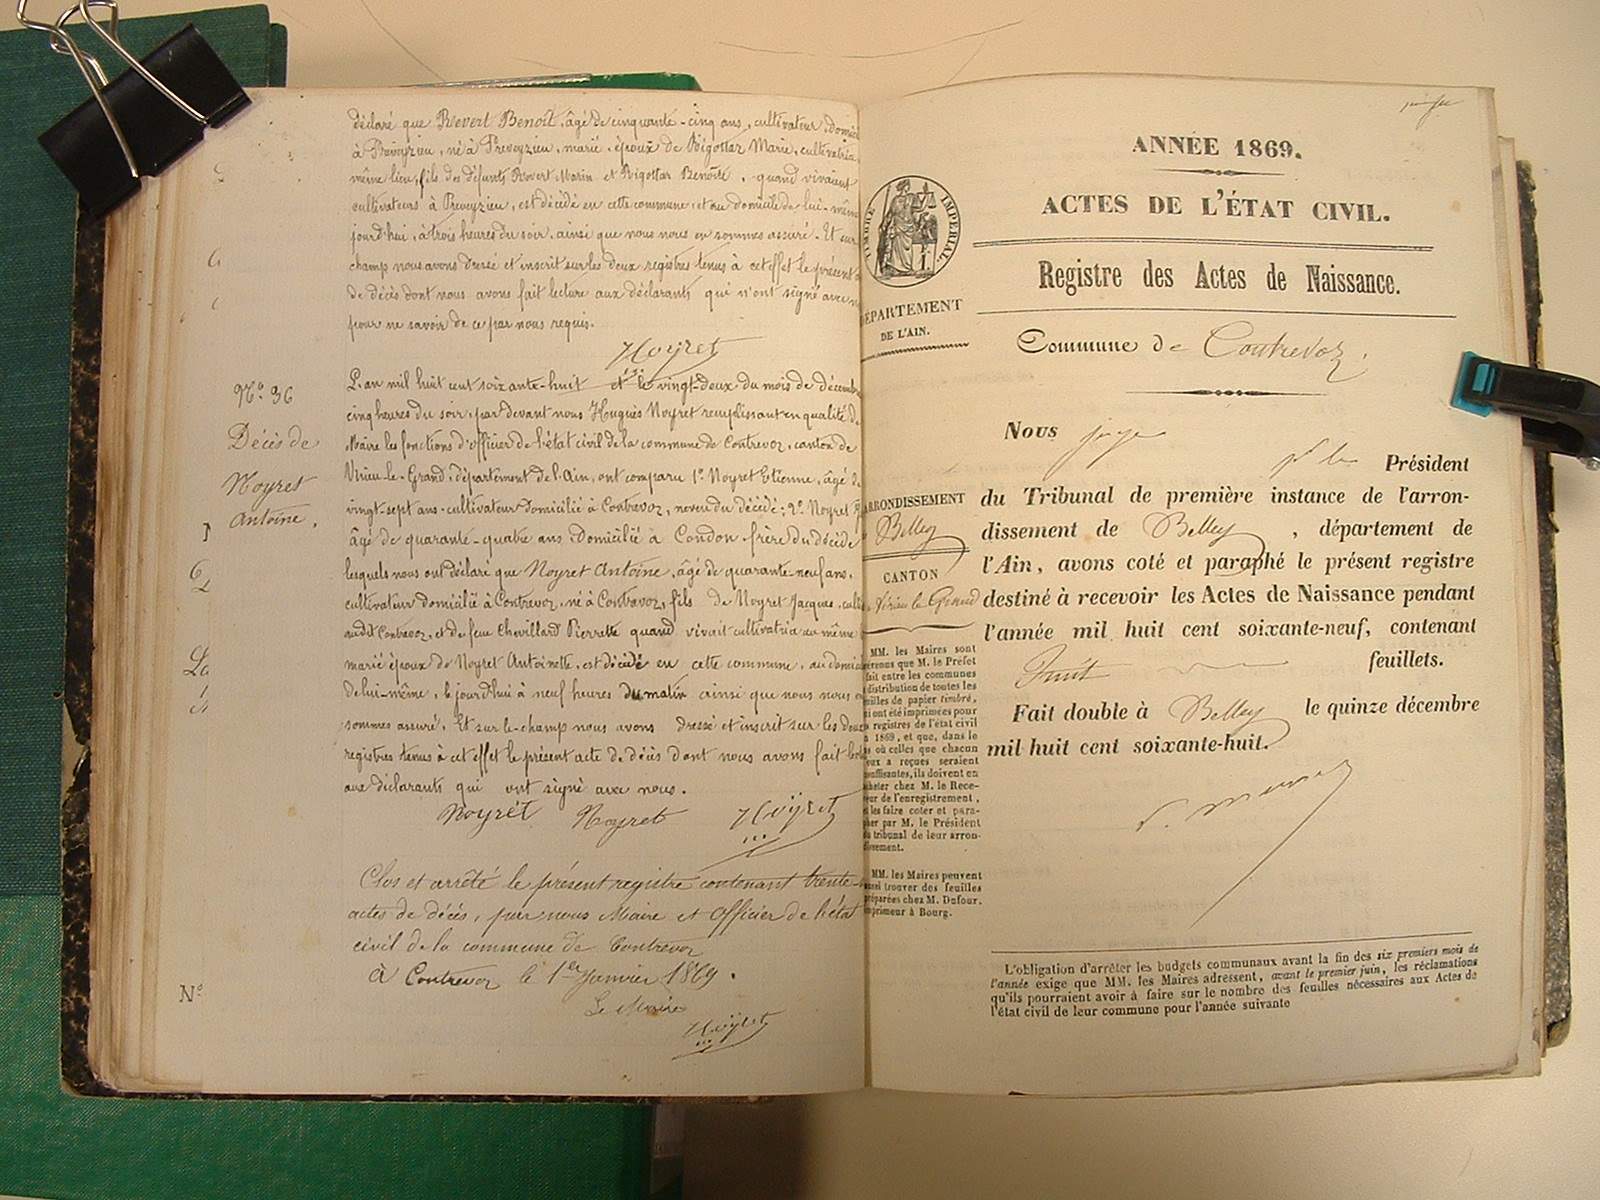 déclaré que Revert Benoît, âgé de cinquante-cinq ans, cultivateur, domicil
à Preveyzieu, né à Preveyzieu, marié, époux de Rigottaz Marie, cultivatrice
même lieu, fils des défunts Revert Marin et Rigottaz Benoîte, quand vivaient
cultivateurs à Preveyzieu, est décédé en cette commune, et au domicile de lui-même
jourd'hui, à trois heures du soir, ainsi que nous nous en sommes assuré. Et sur
champ nous avons dressé et inscrit sur les deux registres tenus à cet effet le présent
de décès dont nous avons fait lecture aux déclarants qui n'ont signé avec n
pour ne savoir de ce par nous requis.
Hoyret
N° 36
Décès de
Noyret
Antoine.
L'an mil huit cent soixante-huit et le vingt-deux du mois de décembre
cinq heures du soir, par devant nous Hugues Noyret remplissant en qualité de
Maire les fonctions d'officier de l'état civil de la commune de Contrevoz, canton de
Virieu-le-Grand, département de l'Ain, ont comparu 1° Noyret Etienne, âgé de
vingt-sept ans, cultivateur domicilié à Contrevoz, neveu du décédé; 2° Noyret
âgé de quarante-quatre ans domicilié à Condon, frère du décédé
lesquels nous ont déclaré que Noyret Antoine, âgé de quarante-neuf ans,
cultivateur domicilié à Contrevoz, né à Contrevoz, fils de Noyret Jacques, culti
audit Contrevoz, et de feue Chevillard Pierrette quand vivait cultivatrice au même
marié époux de Noyret Antoinette, est décédé en cette commune, au domici
de lui-même, le jourd'hui à neuf heures du matin ainsi que nous nous en
sommes assuré. Et sur-le-champ nous avons dressé et inscrit sur les deux
registres tenus à cet effet le présent acte de décès dont nous avons fait lect
aux déclarants qui ont signé avec nous.
Noyret Noyret Hoyret
Clos et arrêté le présent registre contenant trente-
actes de décès, par nous Maire et Officier de l'état
civil de la commune de Contrevoz
à Contrevoz le 1er Janvier 1869.
Le Maire
Hoyret
N°
ANNÉE 1869.
ACTES DE L'ÉTAT CIVIL.
Registre des Actes de Naissance.
Commune de Contrevoz
TIMBRE IMPÉRIAL
DÉPARTEMENT
DE L'AIN.
ARRONDISSEMENT
Belley
CANTON
Virieu le Grand
MM. les Maires sont
prévenus que M. le Préfet
fait entre les communes
distribution de toutes les
feuilles de papier timbré,
qui ont été imprimées pour
registres de l'état civil
1869, et que, dans le
cas où celles que chacun
d'eux a reçues seraient
insuffisantes, ils doivent en
acheter chez M. le Rece-
veur de l'enregistrement,
et les faire coter et para-
pher par M. le Président
du tribunal de leur arron-
dissement.
MM. les Maires peuvent
aussi trouver des feuilles
préparées chez M. Dufour,
imprimeur à Bourg.
Nous juge Président
du Tribunal de première instance de l'arron-
dissement de Belley, département de
l'Ain, avons coté et paraphé le présent registre
destiné à recevoir les Actes de Naissance pendant
l'année mil huit cent soixante-neuf, contenant
huit feuillets.
Fait double à Belley le quinze décembre
mil huit cent soixante-huit.
L'obligation d'arrêter les budgets communaux avant la fin des six premiers mois de
l'année exige que MM. les Maires adressent, avant le premier juin, les réclamations
qu'ils pourraient avoir à faire sur le nombre des feuilles nécessaires aux Actes de
l'état civil de leur commune pour l'année suivante